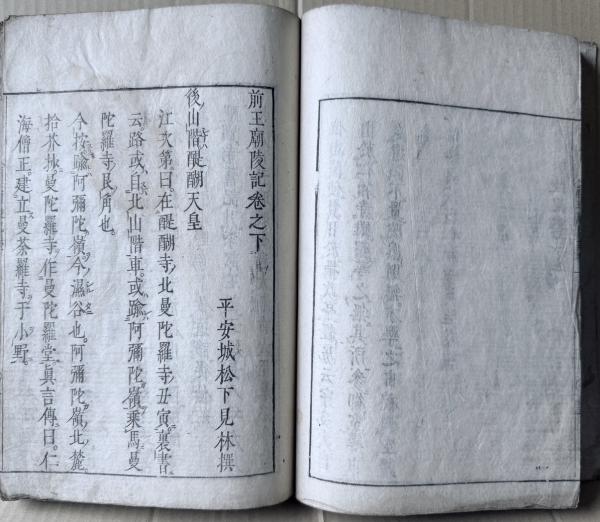 前王廟陵記卷之下
平安城松下見林撰
後山階醍醐天皇
江次第曰在醍醐寺北曼陀羅寺丑寅裏書
云路或自北山階車。或踰阿彌陀嶺乘馬曼
陀羅寺艮角也。
今按踰阿彌陀嶺今濕谷也。阿彌陀嶺北麓。
拾芥抄曼陀羅寺作曼陀羅堂眞言傳曰。仁
海僧正。建立曼荼羅寺于小野。